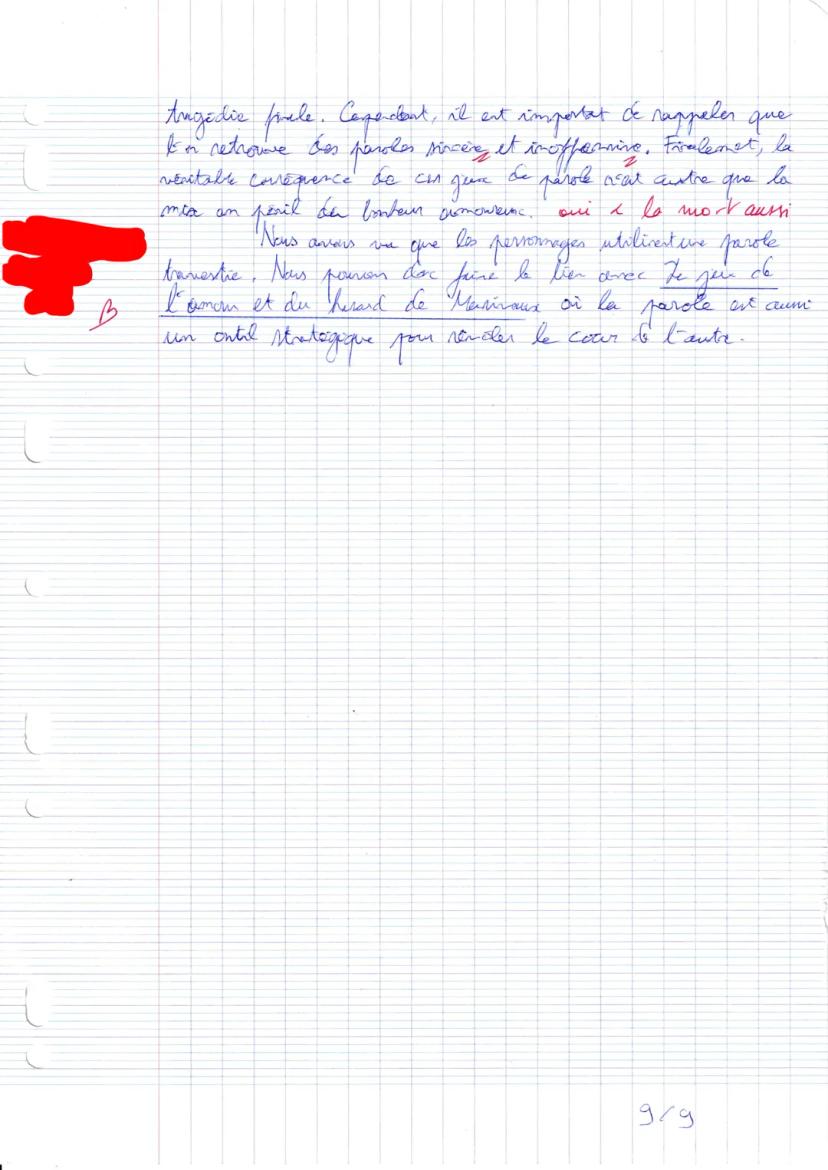 tragédie finale. Cependant, il est important de rappeler que
l'on retrouve des paroles sincère et inoffensive. Finalement, la
véritable conséquence de ces jeux de parole n'est autre que la
mise en péril du bonheur amoureux. oui & la mort aussi
Nous avons vu que les personnages utilisent une parole
travestie. Nous pouvons donc faire le lien avec Le jeu de
l'amour et du hasard de Marivaux où la parole est aussi
B
un outil stratégique pour révéler le cœur de l'autre.
9/9